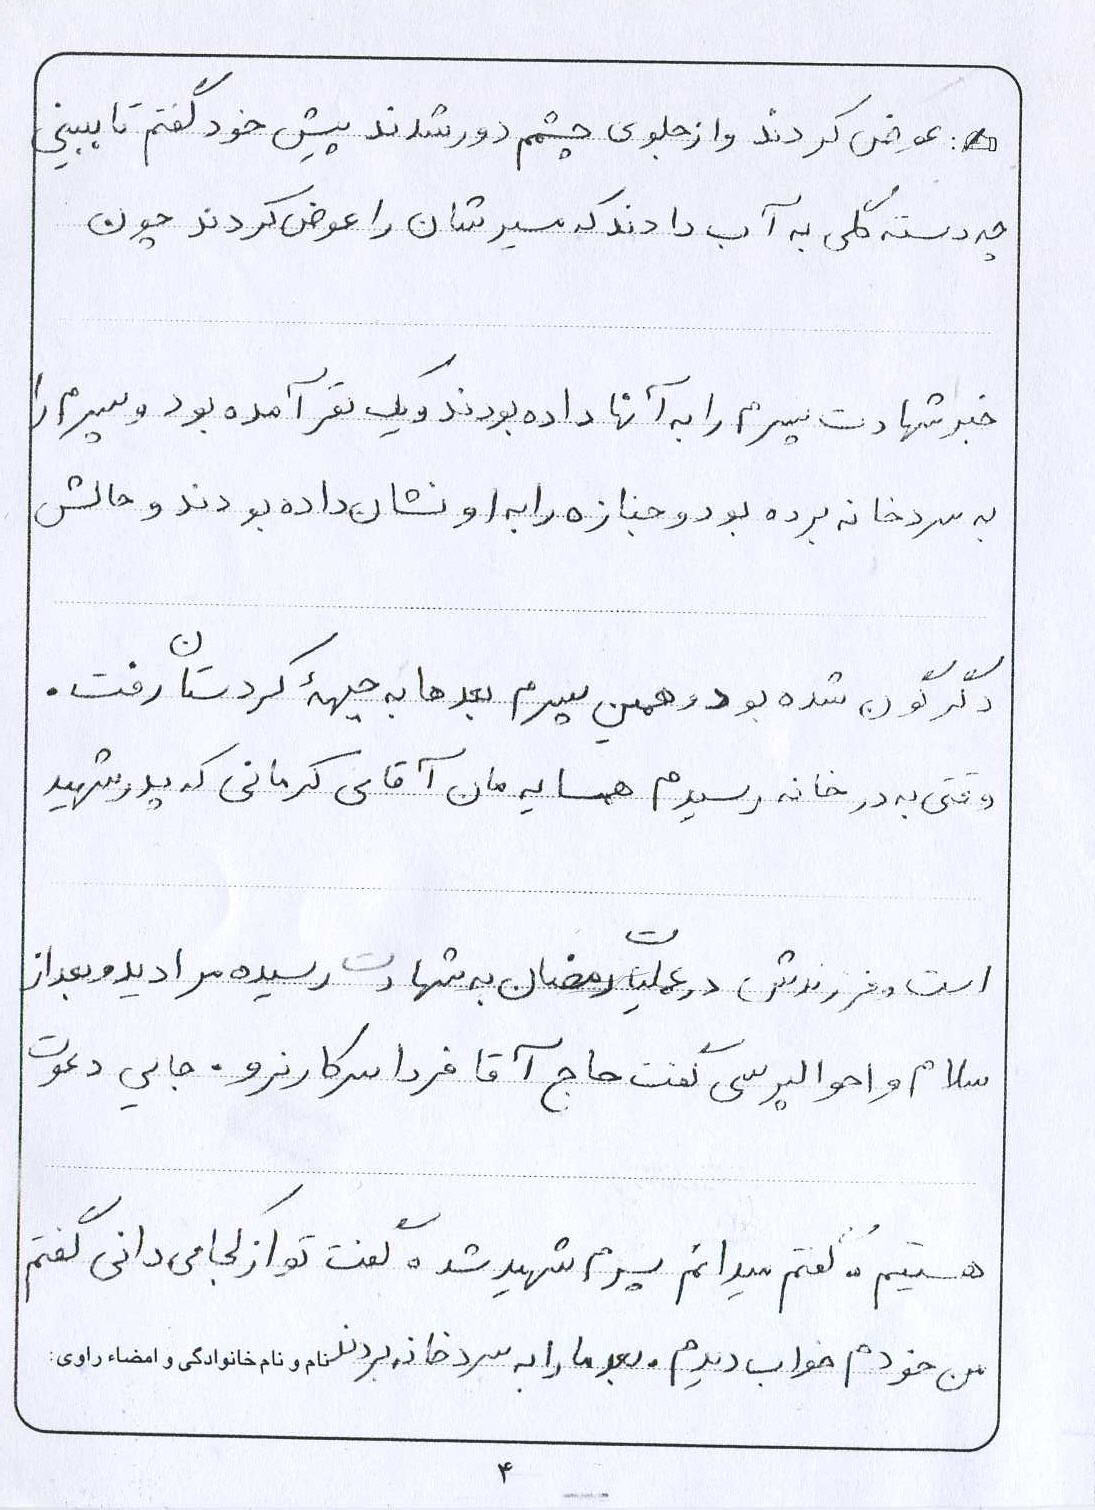 : عوض کردند و از جلوی چشم دور شدند پیش خود گفتم تا ببینی
چه دسته گلی به آب دادند که مسیرشان را عوض کردند چون
خبر شهادت پسرم را به آنها داده بودند و یک نفر آمده بود و پسرم را
به سردخانه برده بود و جنازه را به او نشان داده بودند و حالش
دگرگون شده بود و همین پسرم بعدها به جبههٔ کردستان رفت.
وقتی به در خانه رسیدم همسایه مان آقای کرمانی که پدر شهید
است و فرزندش در عملیات رمضان به شهادت رسیده مرا دید و بعد از
سلام و احوالپرسی گفت حاج آقا فردا سر کار نرو. جایی دعوت
هستیم گفتم میدانم پسرم شهید شده گفت تو از کجا می دانی گفتم
من خودم خواب دیدم. بعد ما را به سردخانه بردند نام و نام خانوادگی و امضاء راوی:
۴